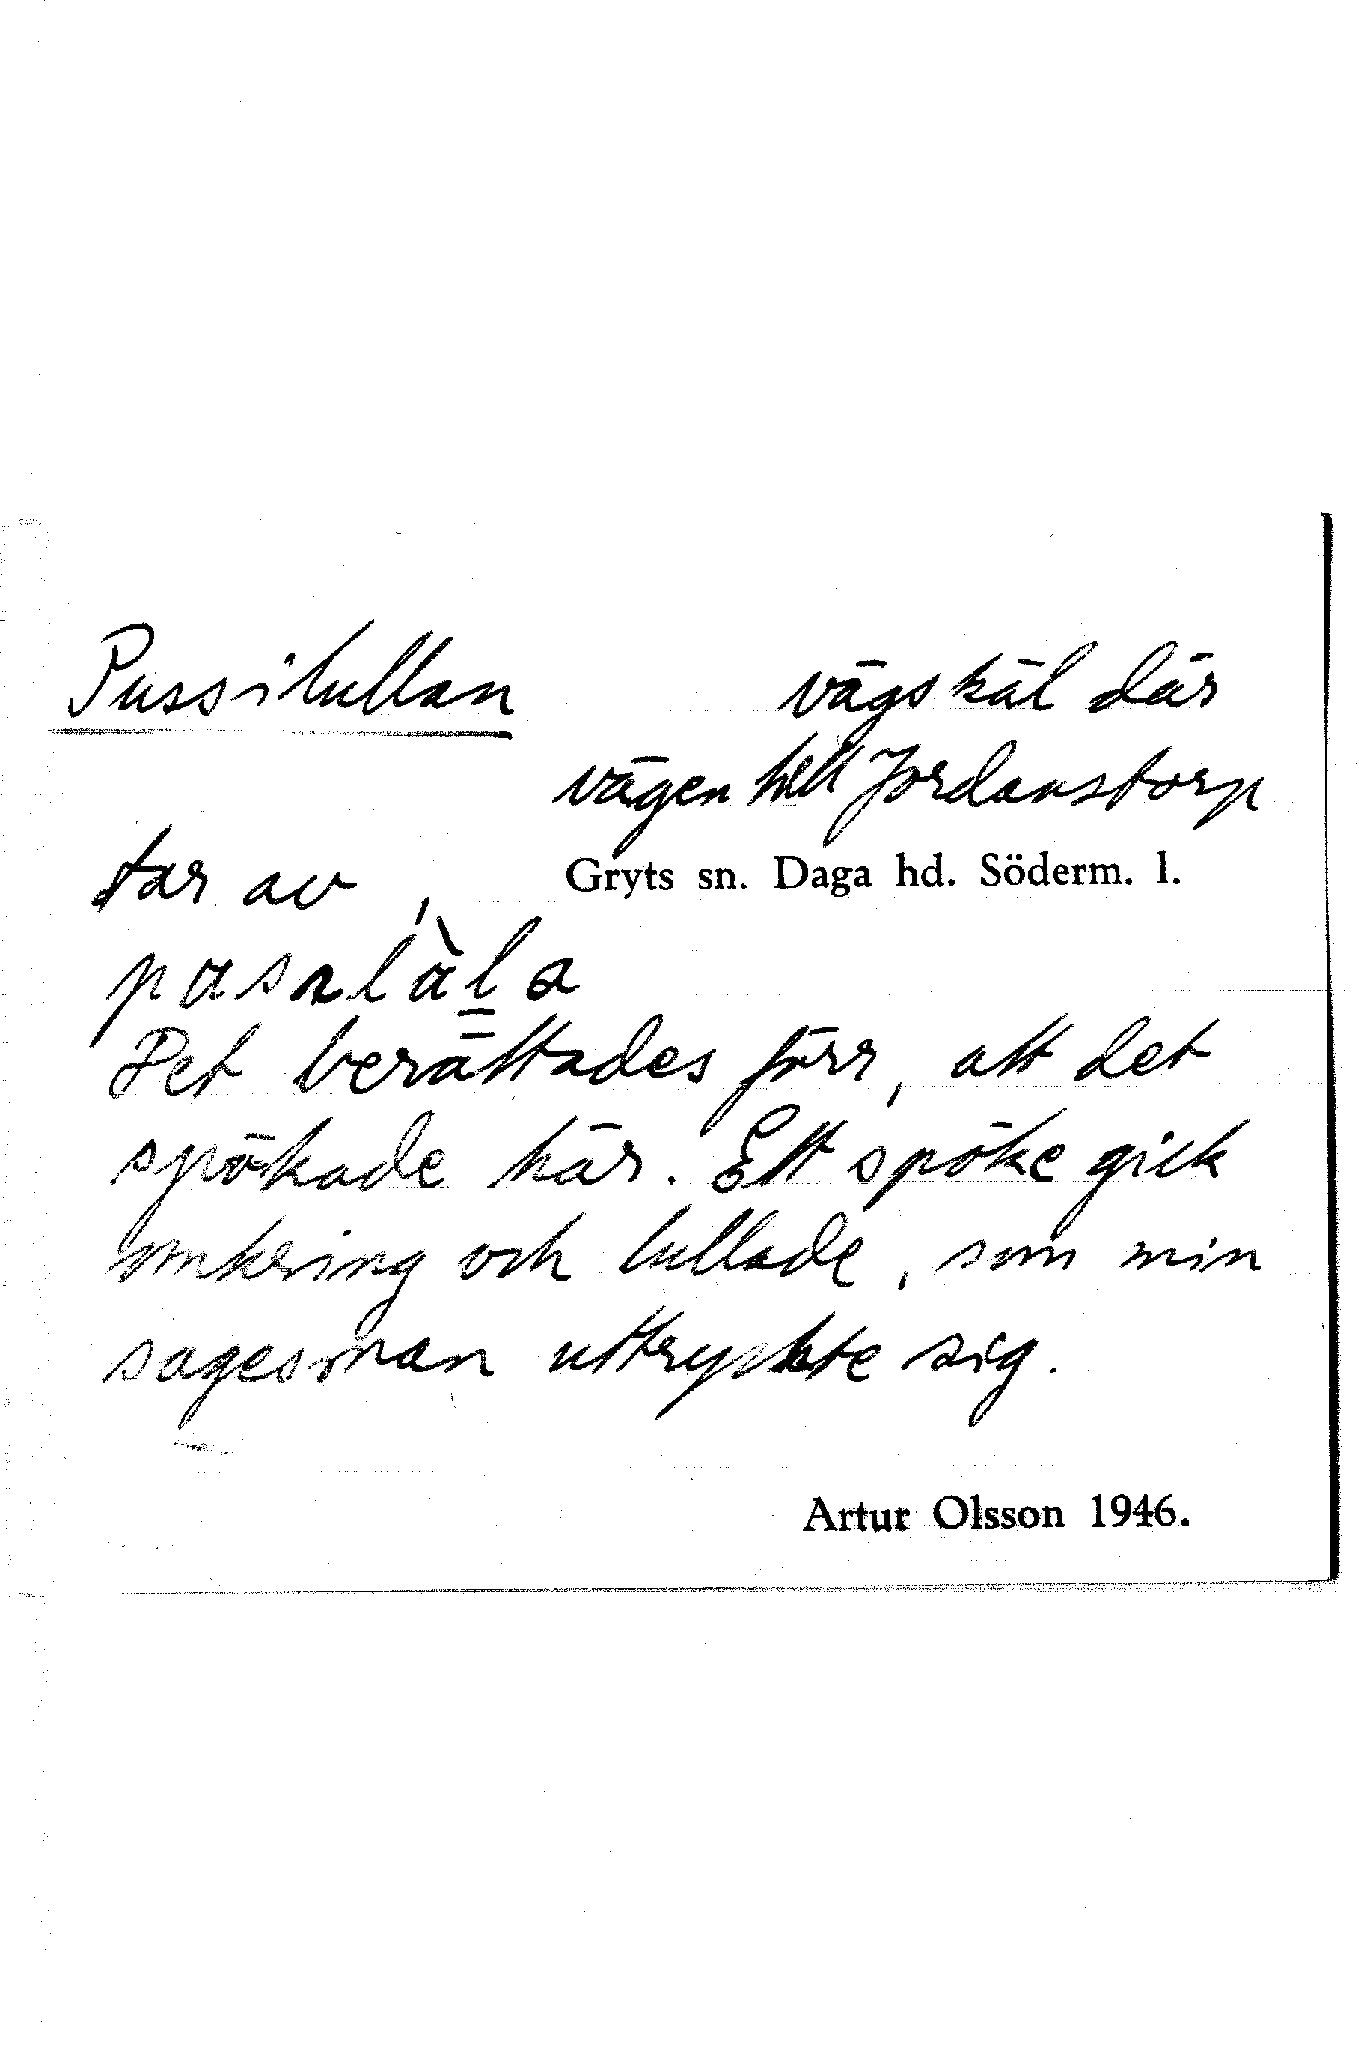 Pussilullan vägskäl där
vägen till Jordanstorp
Gryts sn. Daga hd. Söderm. l.
tar av,
Det berättades förr, att det
spökade här. Ett spöke gick
omkring och lullade, som min
sagesman uttryckte sig.
Artur Olsson 1946.